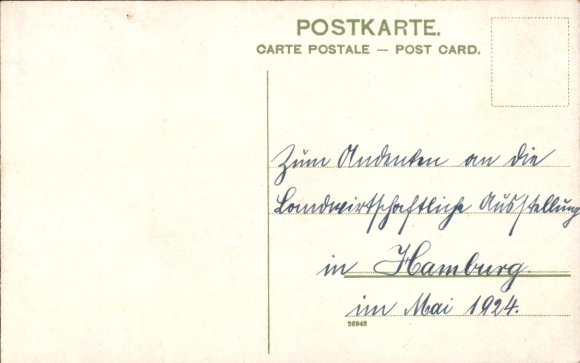 POSTKARTE.
CARTE POSTALE — POST CARD.
Zum Andenken an die
Landwirtschaftliche Ausstellung
in Hamburg.
im Mai 1924.